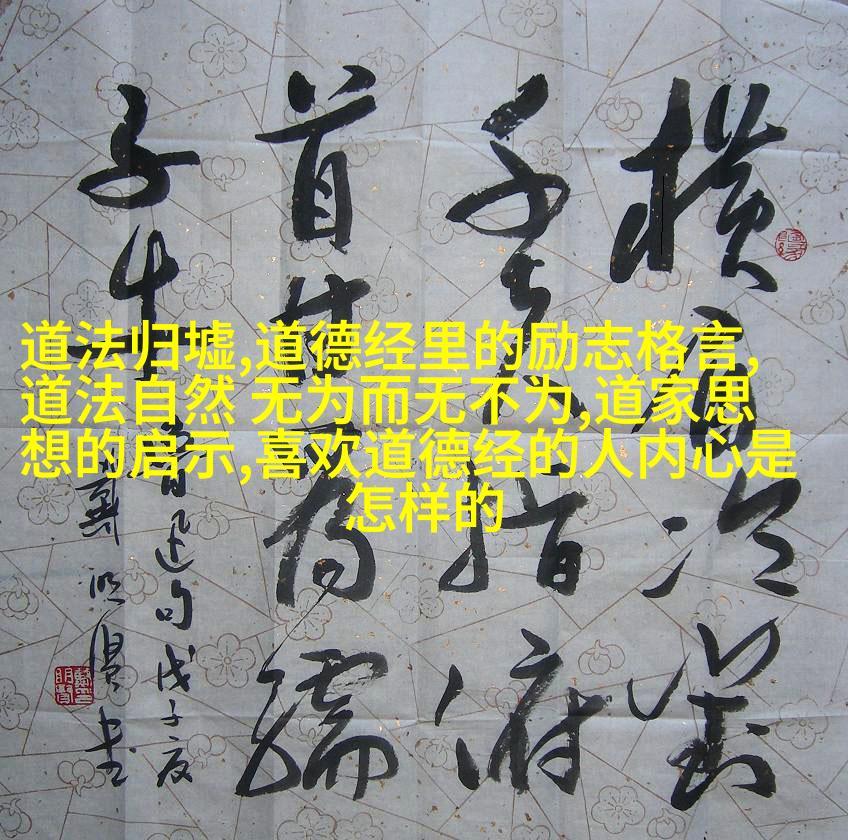 道法归墟,道德经里的励志格言,
道法自然 无为而无不为,道家思
想的启示,喜欢道德经的人内心是
怎样的
横眉冷對
千夫指俯
首甘為孺
子牛
鲁迅句戊子夏
明书